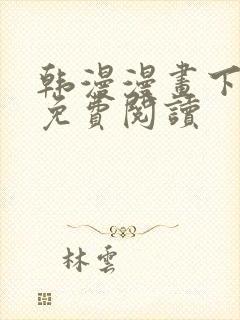 韩漫漫畫下
免費閱讀
林雲